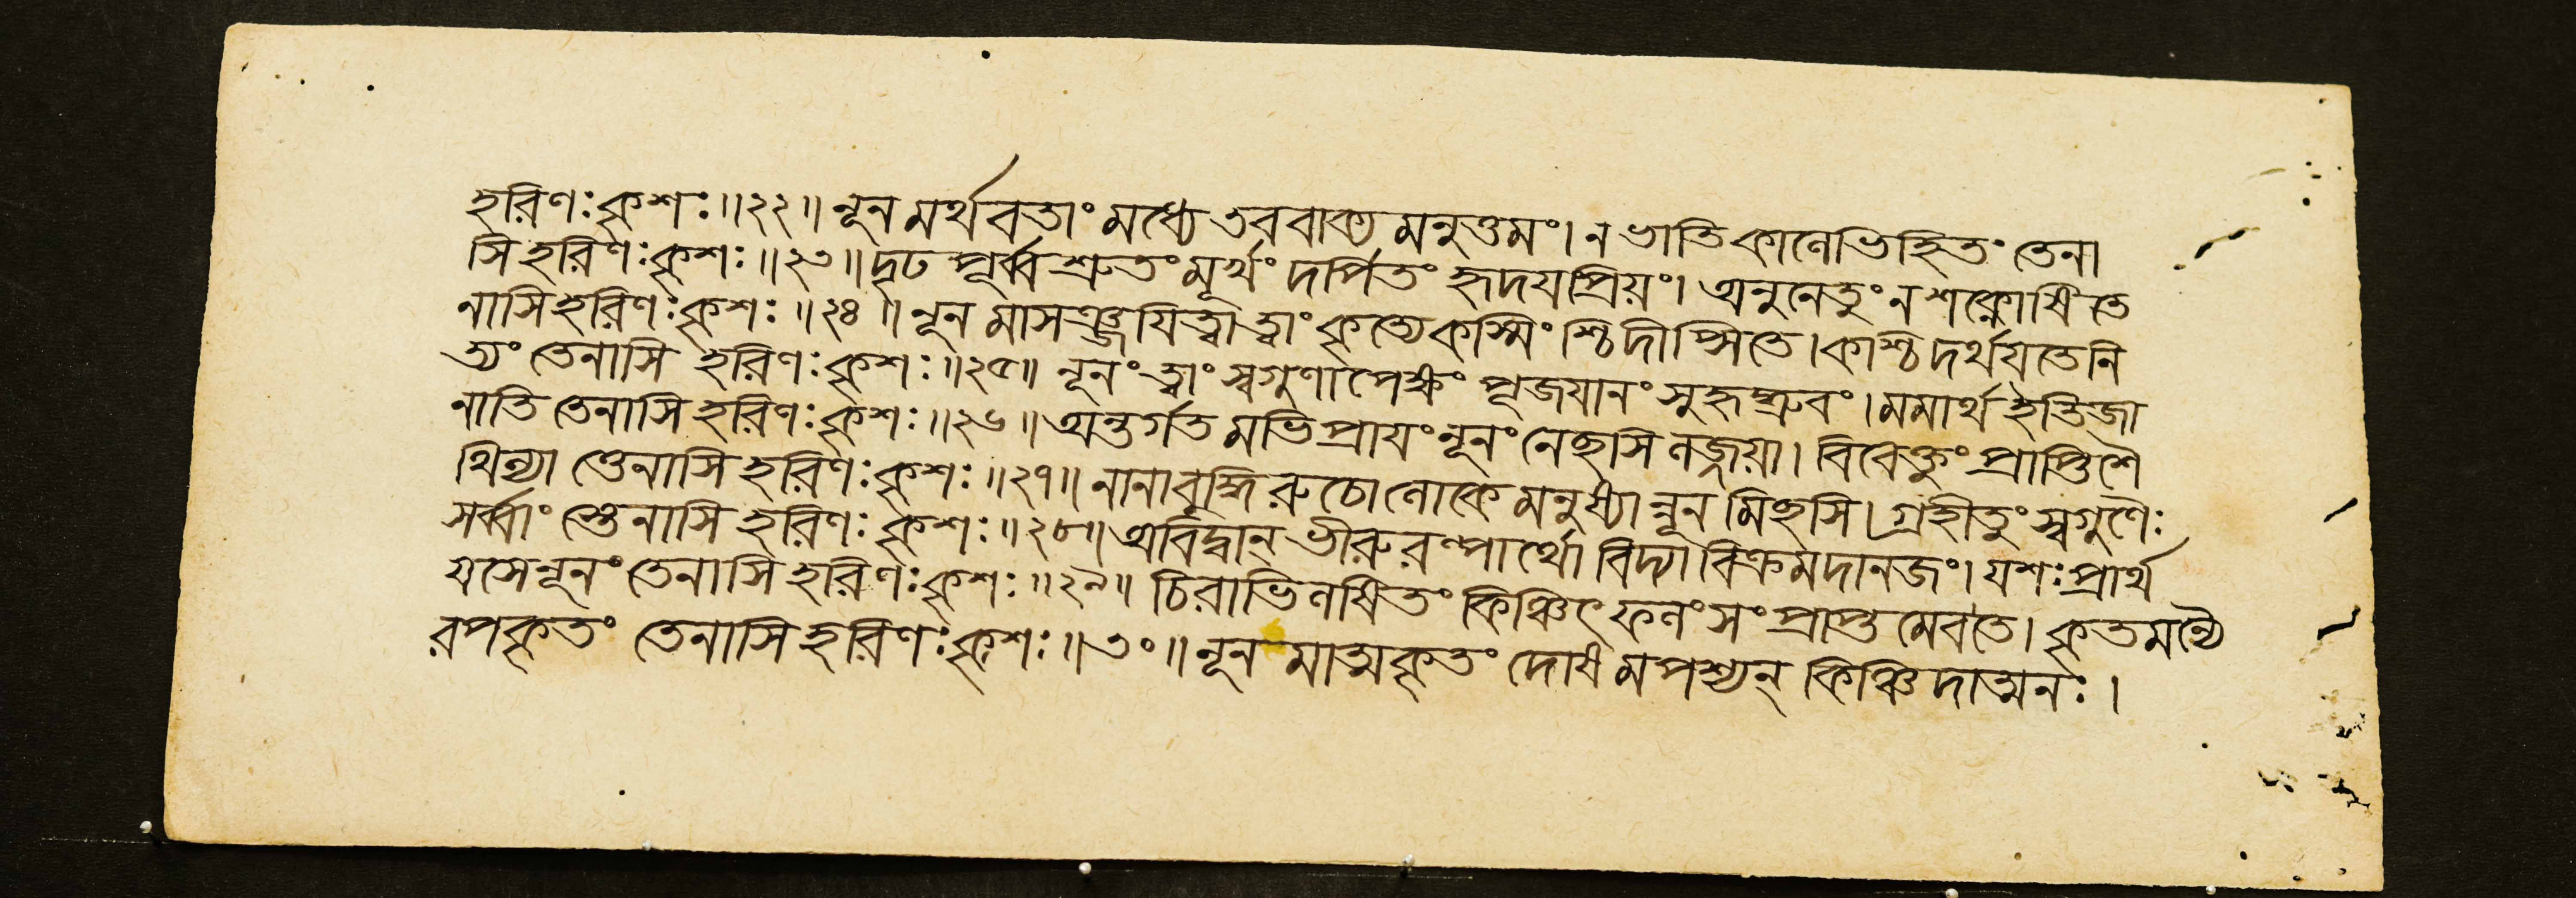 হরিণঃ কৃশঃ ॥ ২২ ॥ নূনমর্থবতাং মধ্যে তব বাক্যমনুত্তমং । ন ভাতি কালেভিহিতং তেনা
সি হরিণঃ কৃশঃ ॥ ২৩ ॥ দৃঢপূর্ব্বশ্রুতং মূর্খং দর্পিতং হৃদযপ্রিয়ং । অনুনেতুং ন শক্নোষি তে
নাসি হরিণঃ কৃশঃ ॥ ২৪ ॥ নূনমাসঞ্জযিত্বা ত্বাং কৃত্যে কস্মিংশ্চিদীপ্সিতে । কশ্চিদর্থযতে নি
ত্যং তেনাসি হরিণঃ কৃশঃ ॥ ২৫ ॥ নূনং ত্বাং স্বগুণাপেক্ষং পূজযানং সুহৃদ্ধ্রুবং । মমার্থ ইতি জা
নাতি তেনাসি হরিণঃ কৃশঃ ॥ ২৬ ॥ অন্তর্গতমভিপ্রাযং নূনং নেছসি লজ্জয়া । বিবেক্তুং প্রাপ্তিশৈ
থিল্যাত্তেনাসি হরিণঃ কৃশঃ ॥ ২৭ ॥ নানাবুদ্ধিরুচো লোকে মনুষ্যান্নূনমিছসি । গ্রহীতুং স্বগুণৈঃ
সর্ব্বাংস্তেনাসি হরিণঃ কৃশঃ ॥ ২৮ ॥ অবিদ্বান্ ভীরুরল্পার্থো বিদ্যাবিক্রমদানজং । যশঃ প্রার্থ
যসে নূনং তেনাসি হরিণঃ কৃশঃ ॥ ২৯ ॥ চিরাভিলষিতং কিঞ্চিৎ ফলং সংপ্রাপ্তমেব তে । কৃতমন্যৈ
রপকৃতং তেনাসি হরিণঃ কৃশঃ ॥ ৩০ ॥ নূনমাত্মকৃতং দোষমপশ্যন্ কিঞ্চিদাত্মনঃ ।